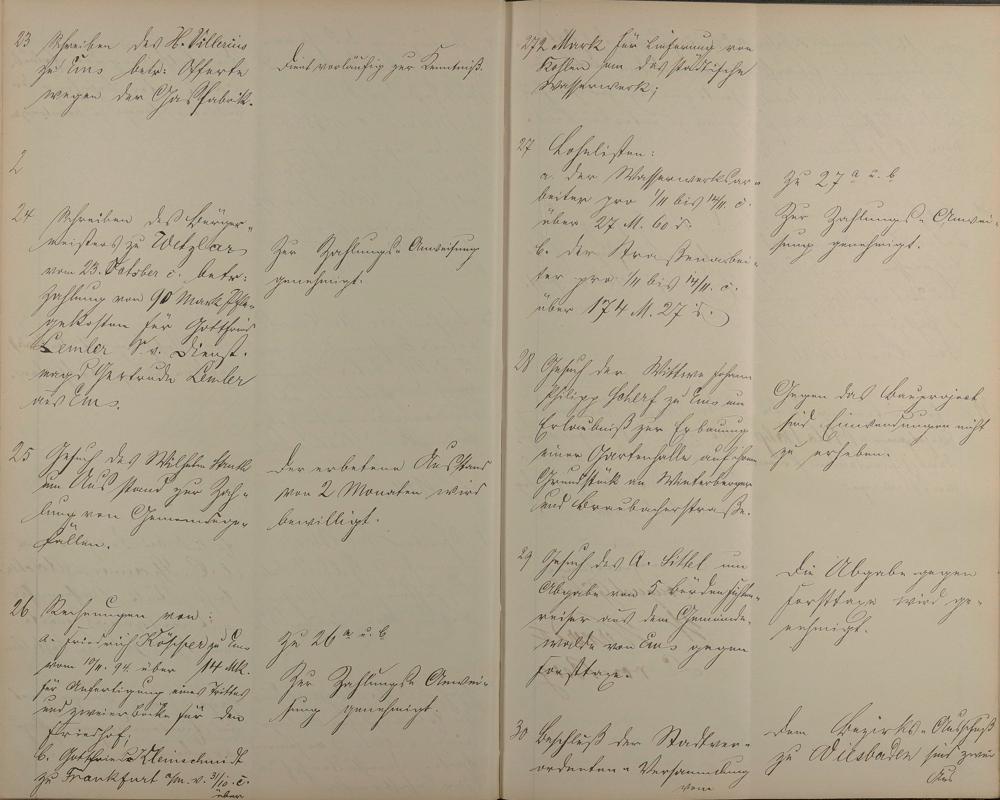 23 Schreiben des H. Villerius
zu Ems betr: Offerte
wegen der Gasfabrik.
Dient vorläufig zur Kenntniß.
2
24 Schreiben des Bürger-
meisters zu Wetzlar
vom 23. October c. betr:
Zahlung von 90 Mark Pfle-
gekosten für Gottfried
Lemler S. v. Dienst-
magd Gertrude Lemler
aus Ems.
Zur Zahlungs-Anweisung
genehmigt.
25 Gesuch des Wilhelm
um Ausstand zur Zah-
lung von Gemeindege-
fällen.
Der erbetene Ausstand
von 2 Monaten wird
bewilligt.
26 Rechnungen von:
a. Friedrich Köpper zu Ems
vom 10/11. 94 über 14 Mk.
für Anfertigung eines Trittes
und zweier Böcke für den
Friedhof;
b. Gottfried Kleinschmidt
zu Frankfurt a/m. v. 31/10. c.
über
Zu 26 a u. b
Zur Zahlungs-Anwei-
sung genehmigt.
272 Mark für Lieferung von
Kohlen an das städtische
Wasserwerk;
27 Lohnlisten:
a. der Wasserwerksar-
beiter pro 1/11 bis 14/11. c.
über 27 M. 60 d.
b. der Straßenarbei-
ter pro 1/11 bis 14/11. c.
über 174 M. 27 d.
Zu 27 a u. b
Zur Zahlungs-Anwei-
sung genehmigt.
28 Gesuch der Wittwe Johann
Philipp zu Ems um
Erlaubniß zur Erbauung
einer Gartenhalle auf ihrem
Grundstück an Winterberger-
und Braubacherstraße.
Gegen das Bauproject
sind Einwendungen nicht
zu erheben.
29 Gesuch des A. um
Abgabe von 5 Bürden Fichten-
reiser aus dem Gemeinde-
walde von Ems gegen
Forsttaxe.
Die Abgabe gegen
Forsttaxe wird ge-
nehmigt.
30 Beschluß der Stadtver-
ordneten-Versammlung
vom
Dem Bezirks-Ausschuß
zu Wiesbaden sind zwei
Aus